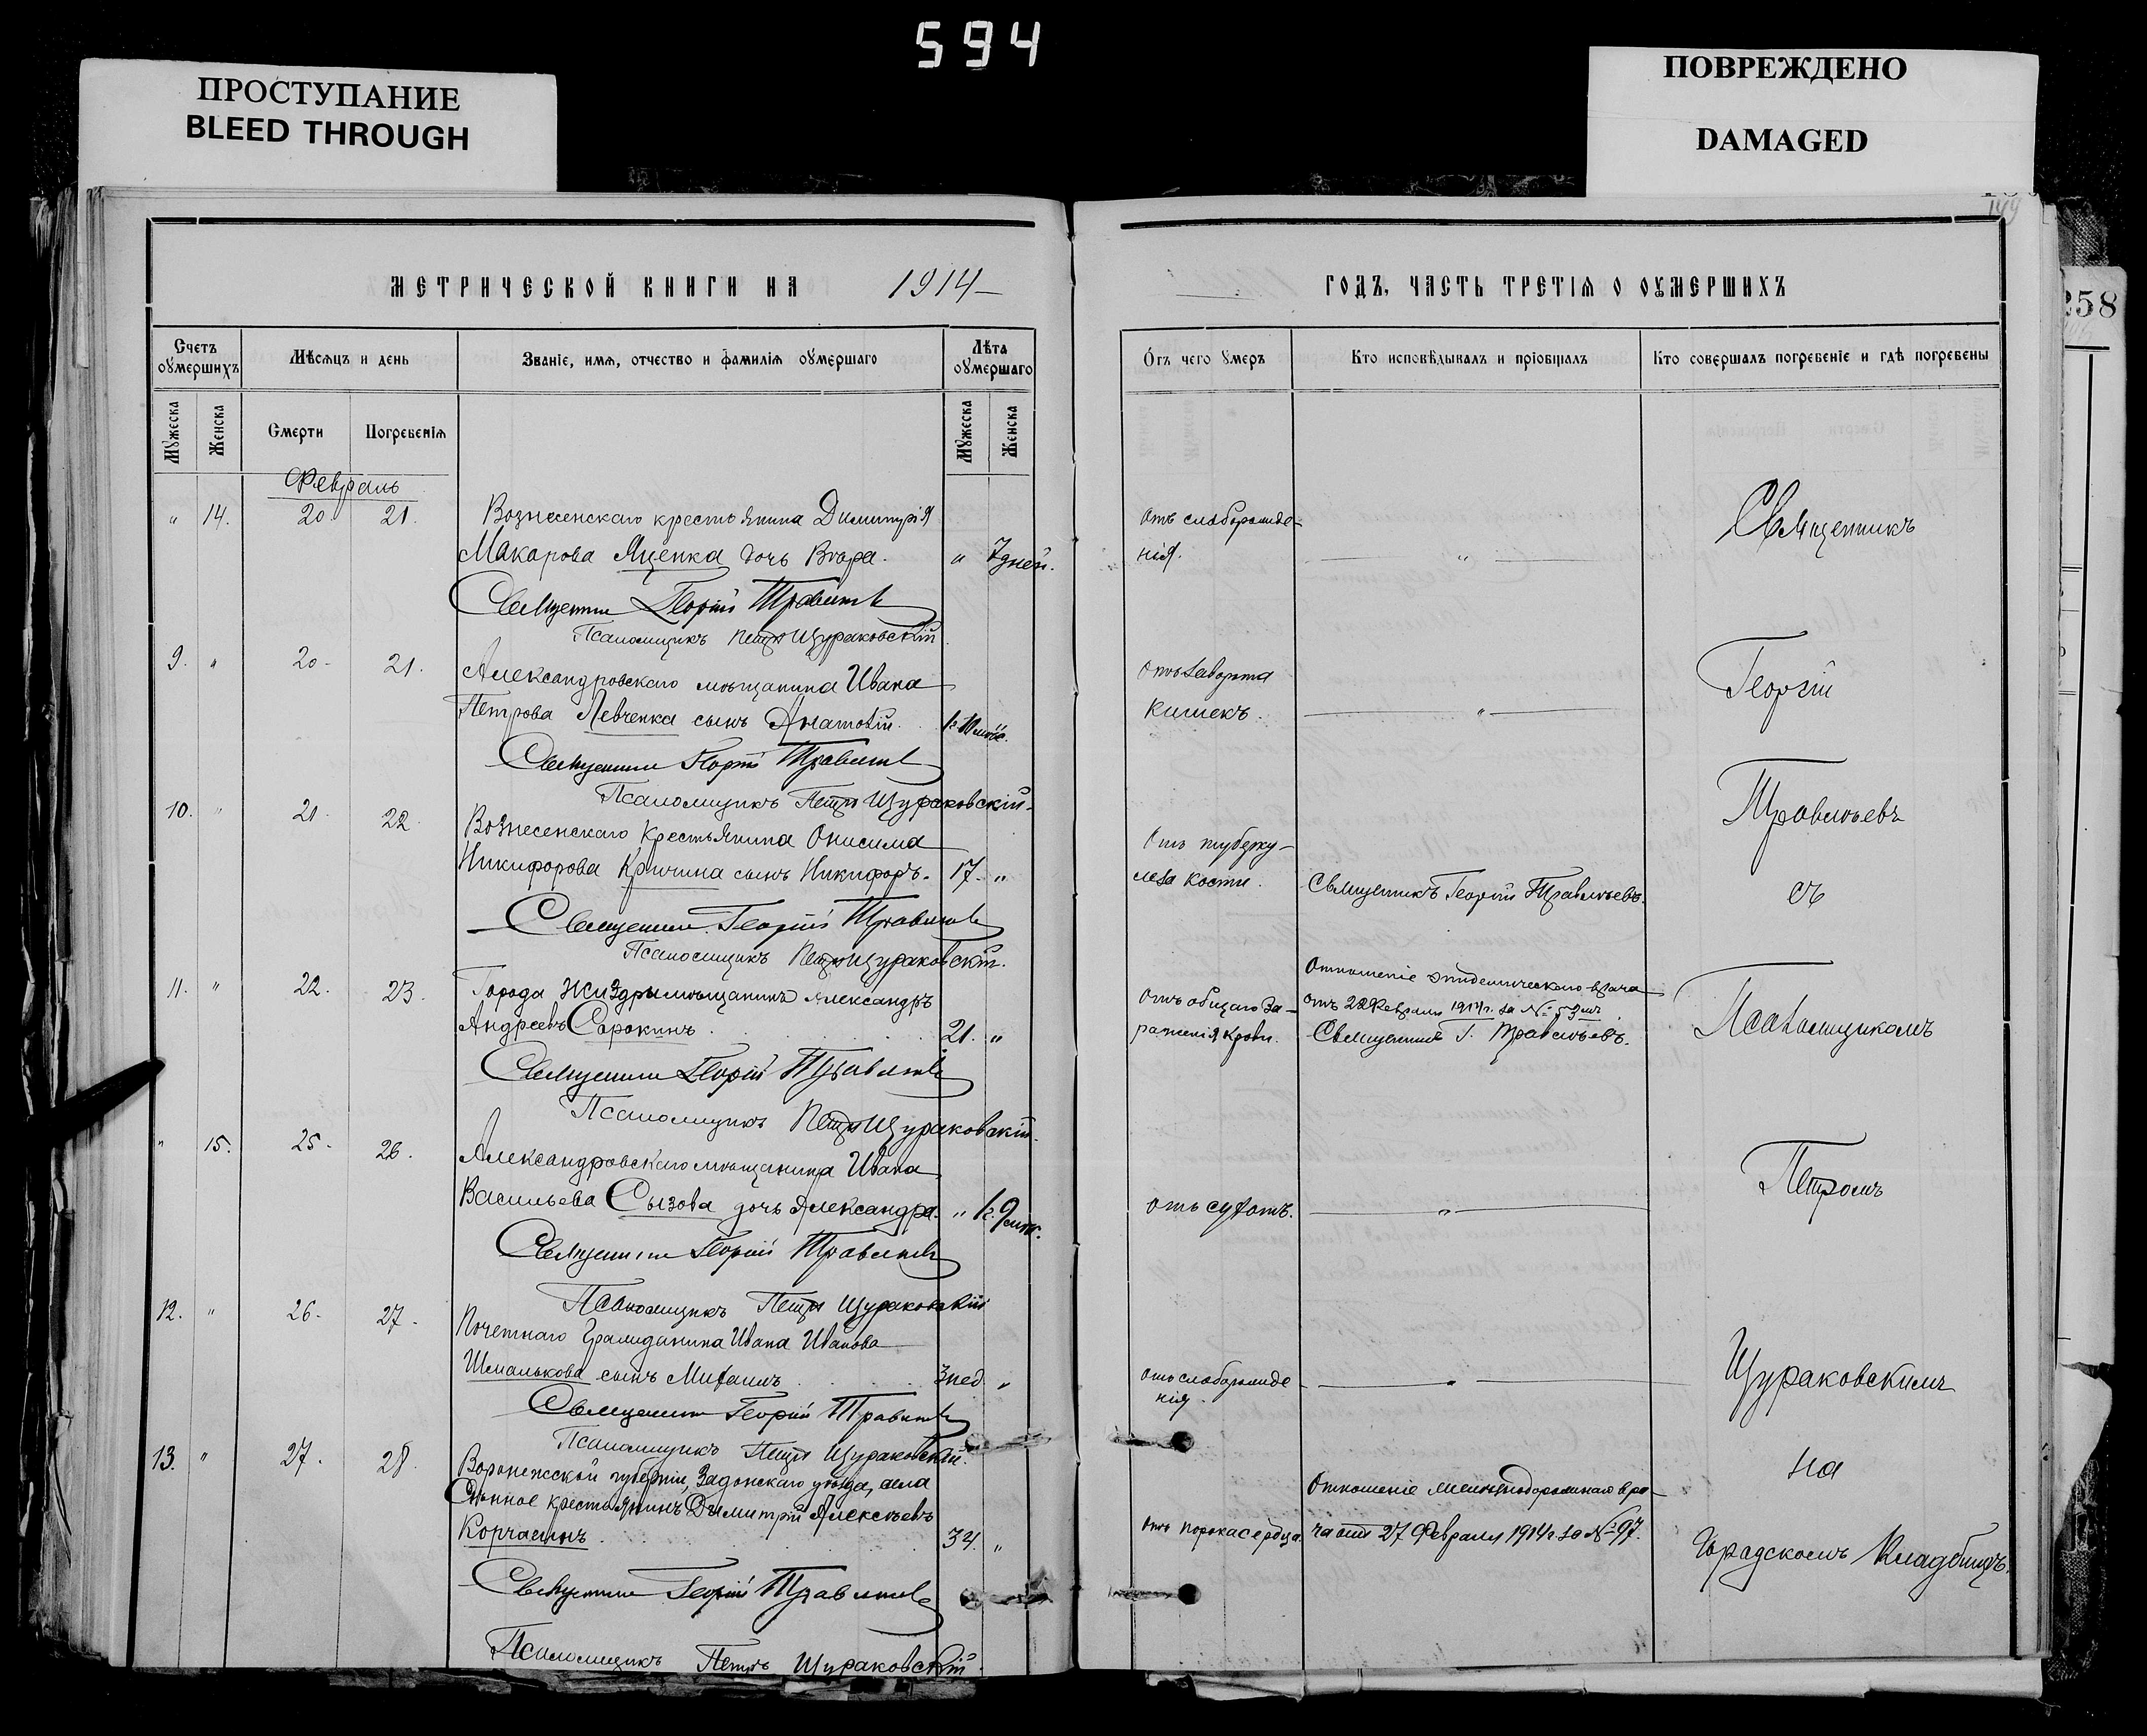 594
ПРОСТУПАНИЕ
BLEED THROUGH
ПОВРЕЖДЕНО
DAMAGED
149
258
МЕТРИЧЕСКОЙ КНИГИ НА 1914
Счетъ оумершихъ
Мѣсяцъ и день
Званіе, имя, отчество и фамилія оумершаго
Лѣта оумершаго
Мужеска
Женска
Смерти
Погребенія
Мужеска
Женска
Февраль
" 14. 20 21. Вознесенскаго крестьянина Димитрія
Макарова Яценка дочь Вѣра. " 7 дней.
Священник Георгій Травинъ
Псаломщикъ Петръ Щураковскій
9. " 20 - 21. Александровскаго мѣщанина Ивана
Петрова Левченка сынъ Анатолій.
Священник Георгій
Псаломщикъ Петръ Щураковскій
10. " 21 22 Вознесенскаго крестьянина Онисима
Никифорова Кричина сынъ Никифоръ. 17. "
Священник Георгій
Псаломщикъ Петръ Щураковскій.
11. " 22. 23. Города Жиздры мѣщанинъ Александръ
Андреевъ Сорокинъ 21. "
Священник Георгій
Псаломщикъ Петръ Щураковскій.
" 15. 25 - 26. Александровскаго мѣщанина Ивана
Васильева Сызова дочь Александра.
Священник Георгій
Псаломщикъ Петръ Щураковскій
12. " 26. 27. Почетнаго Гражданина Ивана Иванова
Шмалькова сынъ Михаилъ 3 нед. "
Священник Георгій
Псаломщикъ Петръ Щураковскій.
13. " 27. 28 Воронежской губерніи, Задонскаго уѣзда, села
крестьянинъ Димитрій Алексѣевъ
Корчагинъ 34. "
Священник Георгій
Псаломщикъ Петръ Щураковскій
ГОДЪ, ЧАСТЬ ТРЕТІЯ О ОУМЕРШИХЪ
Отъ чего умеръ
Кто исповѣдывалъ и пріобщалъ
Кто совершалъ погребеніе и гдѣ погребены
Отъ слаборожде-
нія. "
Священникъ
Отъ заворота
кишекъ. "
Георгій
Отъ туберку-
леза кости. Священникъ Георгій
съ
Отношеніе эпидемическаго врача
Отъ общаго за- отъ 22 Февраля 1914 г. за № 53
раженія крови. Священник Г.
Псаломщикомъ
Отъ сухотъ. "
Петромъ
Отъ слаборожде
нія "
Щураковскимъ
на
Отношеніе
Отъ порока сердца. ча отъ 27 Февраля 1914 г. за № 97.
Городскомъ Кладбищѣ.